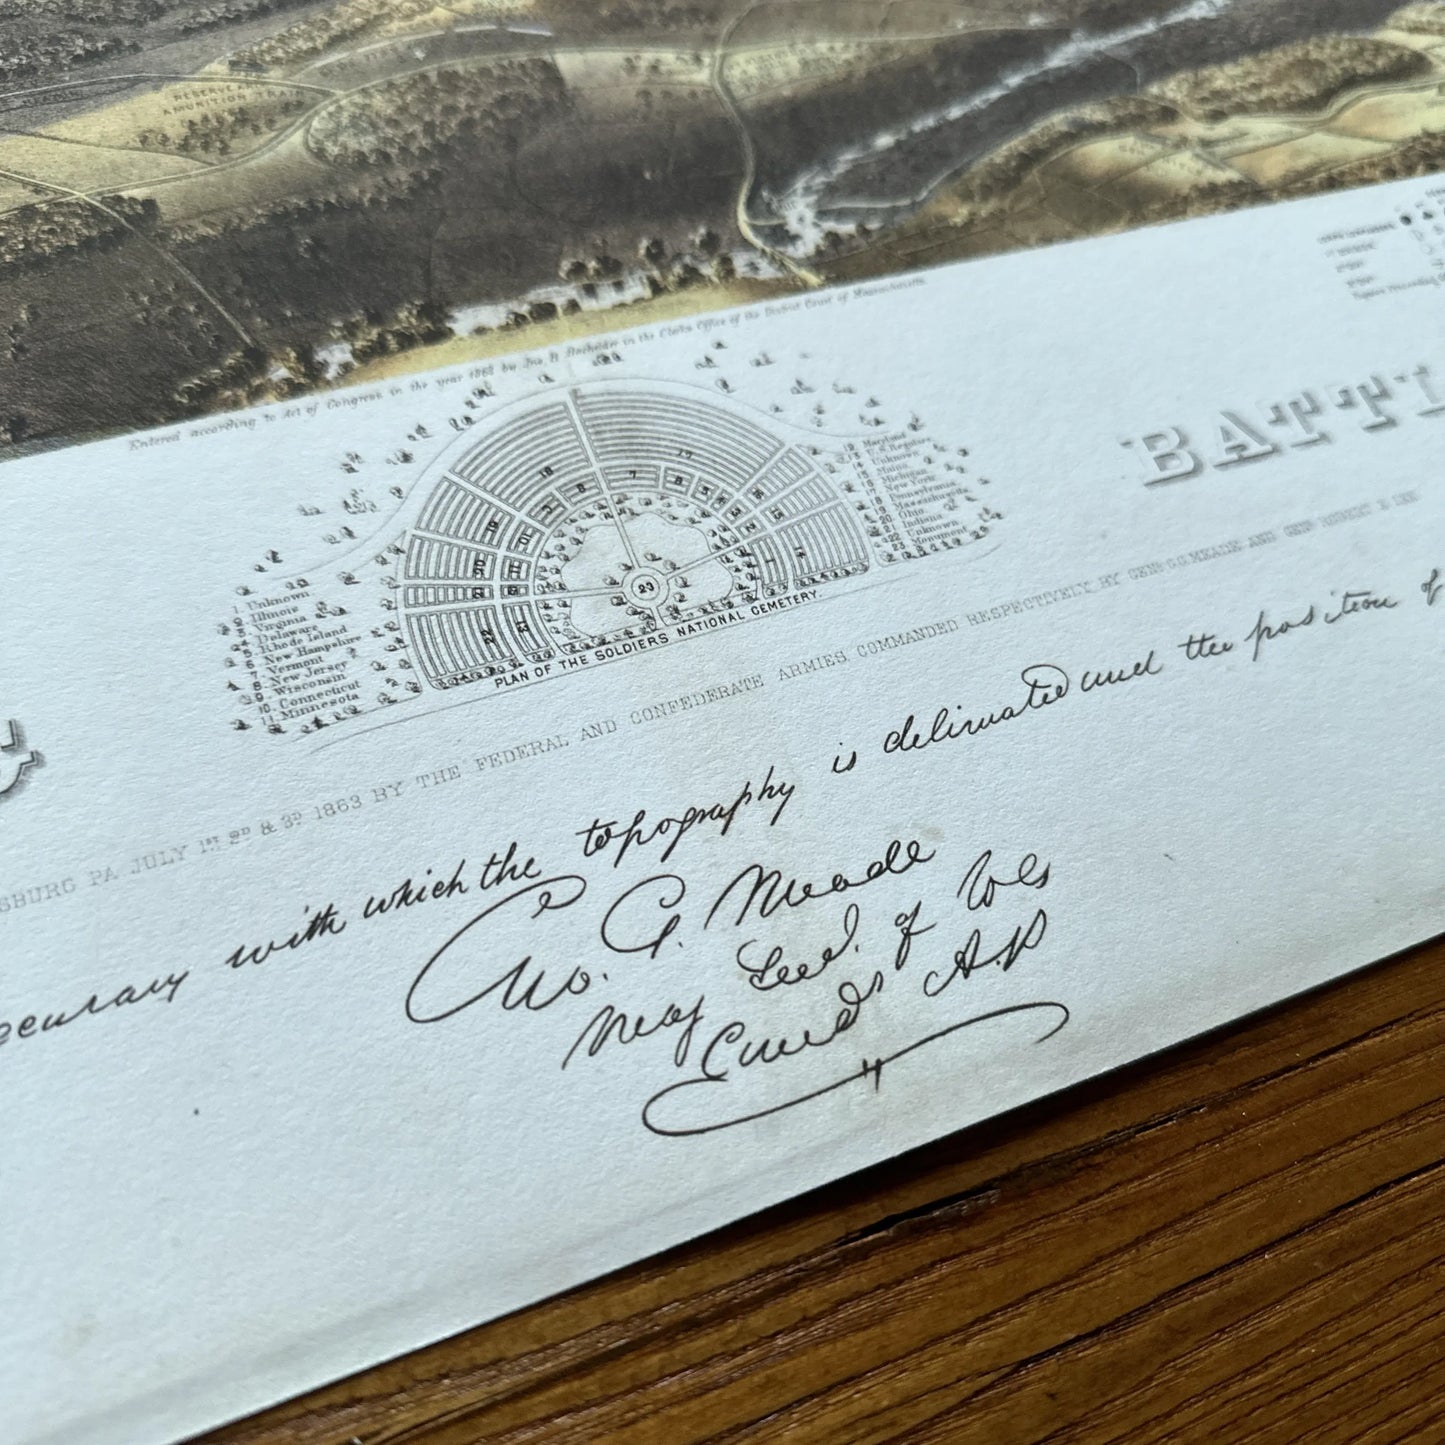 RESERVE
AMUNITION
Entered according to Act of Congress in the year 1863 by Jno. B. Bachelder in the Clerks Office of the District Court of Massachusetts.
1. Unknown
2. Illinois
3. Virginia
4. Delaware
5. Rhode Island
6. New Hampshire
7. Vermont
8. New Jersey
9. Wisconsin
10. Connecticut
11. Minnesota
12 Maryland
13 U.S. Regulars
14 Unknown
15 Maine
16 Michigan
17 New York
18 Pennsylvania
19 Massachusetts
20 Ohio
21 Indiana
22 Unknown
23 Monument
PLAN OF THE SOLDIERS NATIONAL CEMETERY
BATTL
SBURG PA JULY 1ST 2D & 3D 1863 BY THE FEDERAL AND CONFEDERATE ARMIES COMMANDED RESPECTIVELY BY GENS G.G. MEADE AND GENL ROBERT E. LEE
ccuracy with which the topography is delineated and the position of
Geo. G. Meade
Maj Genl. of Vols
Comd'g A.P